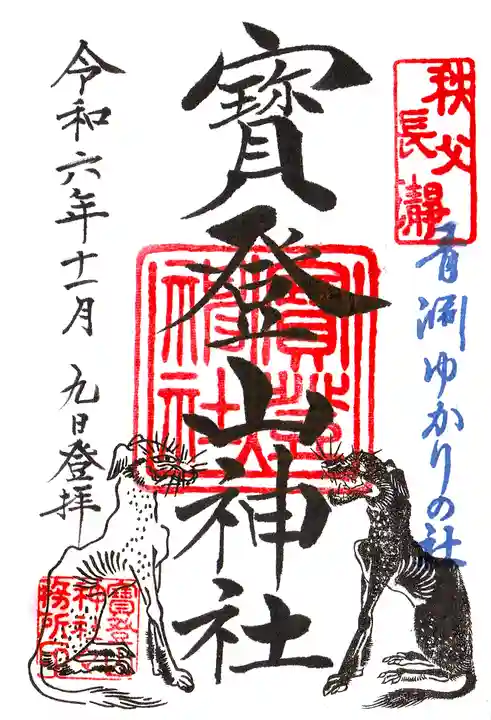 秩父
長瀞
青淵ゆかりの社
寳登山神社
寳登山
神社
令和六年十一月九日登拝
寳登山
神社
務所印